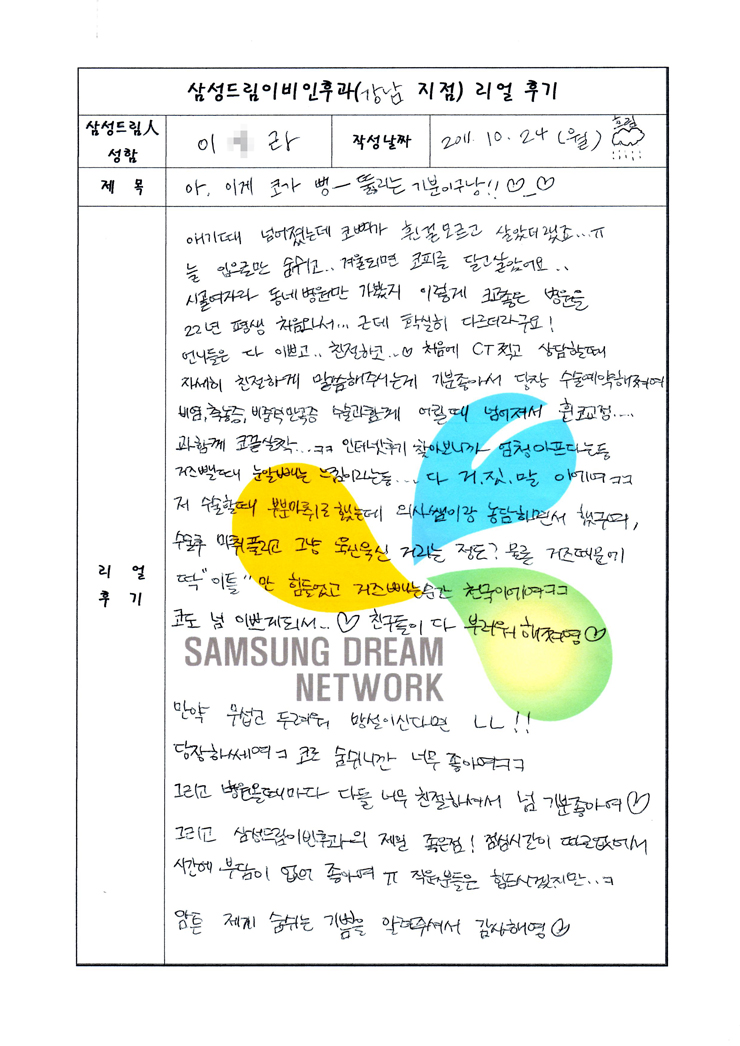 삼성드림이비인후과(강남 지점) 리얼 후기
삼성드림人 성함
이 라
작성날짜
2011. 10. 24 (월)
흐림
제 목
아, 이게 코가 뻥ㅡ 뚫리는 기분이구낭!! ♡_♡
리 얼 후 기
애기때 넘어졌는데 코뼈가 휜걸모르고 살았더랬죠...ㅠ
늘 입으로만 숨쉬고.. 겨울되면 코피를 달고살았어요..
시골여자라 동네병원만 가봤지 이렇게 크고좋은 병원을
22년 평생 처음와서... 근데 확실히 다르더라구요!
언니들은 다 이쁘고.. 친절하고..♡ 처음에 CT찍고 상담할때
자세히 친절하게 말씀해주시는게 기분좋아서 당장 수술예약해쪄여
비염,축농증,비중격만곡증 수술과함께 어릴때 넘어져서 휜코교정....
과함께 코끝살짝...ㅋㅋ 인터넷후기 찾아보니까 엄청아프다는둥
거즈뺄때 눈알빠는 느낌이라는둥.... 다 거.짓.말 이에여ㅋㅋ
저 수술할때 부분마취로 했는데 의사쌤이랑 농담하면서 했구여,
수술후 마취풀리고 그냥 욱신욱신 거리는 정도? 물론 거즈때문에
딱 "이틀" 만 힘들었고 거즈빼는순간 천국이에여ㅋㅋ
코도 넘 이쁘게되서...♡ 친구들이 다 부러워해쪄염♡
SAMSUNG DREAM
NETWORK
만약 무섭고 두려워 망설이신다면 ㄴㄴ!!
당장하쎄여ㅋ 코로 숨쉬니깐 너무 좋아여ㅋㅋ
그리고 병원올때마다 다들 너무 친절하셔서 넘 기분좋아여♡
그리고 삼성드림이빈후과의 제일 좋은점! 점심시간이 따로없어서
시간에 부담이 없어 좋아여 ㅠ 직원분들은 힘드시겠지만..ㅋ
암튼 제게 숨쉬는 기쁨을 알려주셔서 감사해영♡